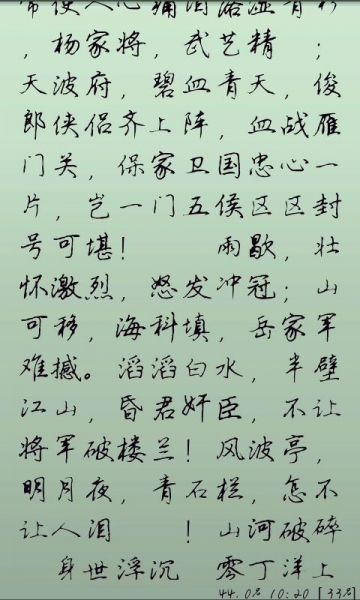 常使人心痛泪洛湿青衫
，杨家将，武艺精　；
天波府，碧血青天，俊
郎侠侣齐上阵，血战雁
门关，保家卫国忠心一
片，岂一门五侯区区封
号可堪！　　　雨歇，壮
怀激烈，怒发冲冠；山
可移，海科填，岳家军
难撼。滔滔白水，半壁
江山，昏君奸臣，不让
将军破楼兰！风波亭，
明月夜，青石栏，怎不
让人泪　　！山河破碎
　身世浮沉　零丁洋上
44.0% 10:20 [33%]